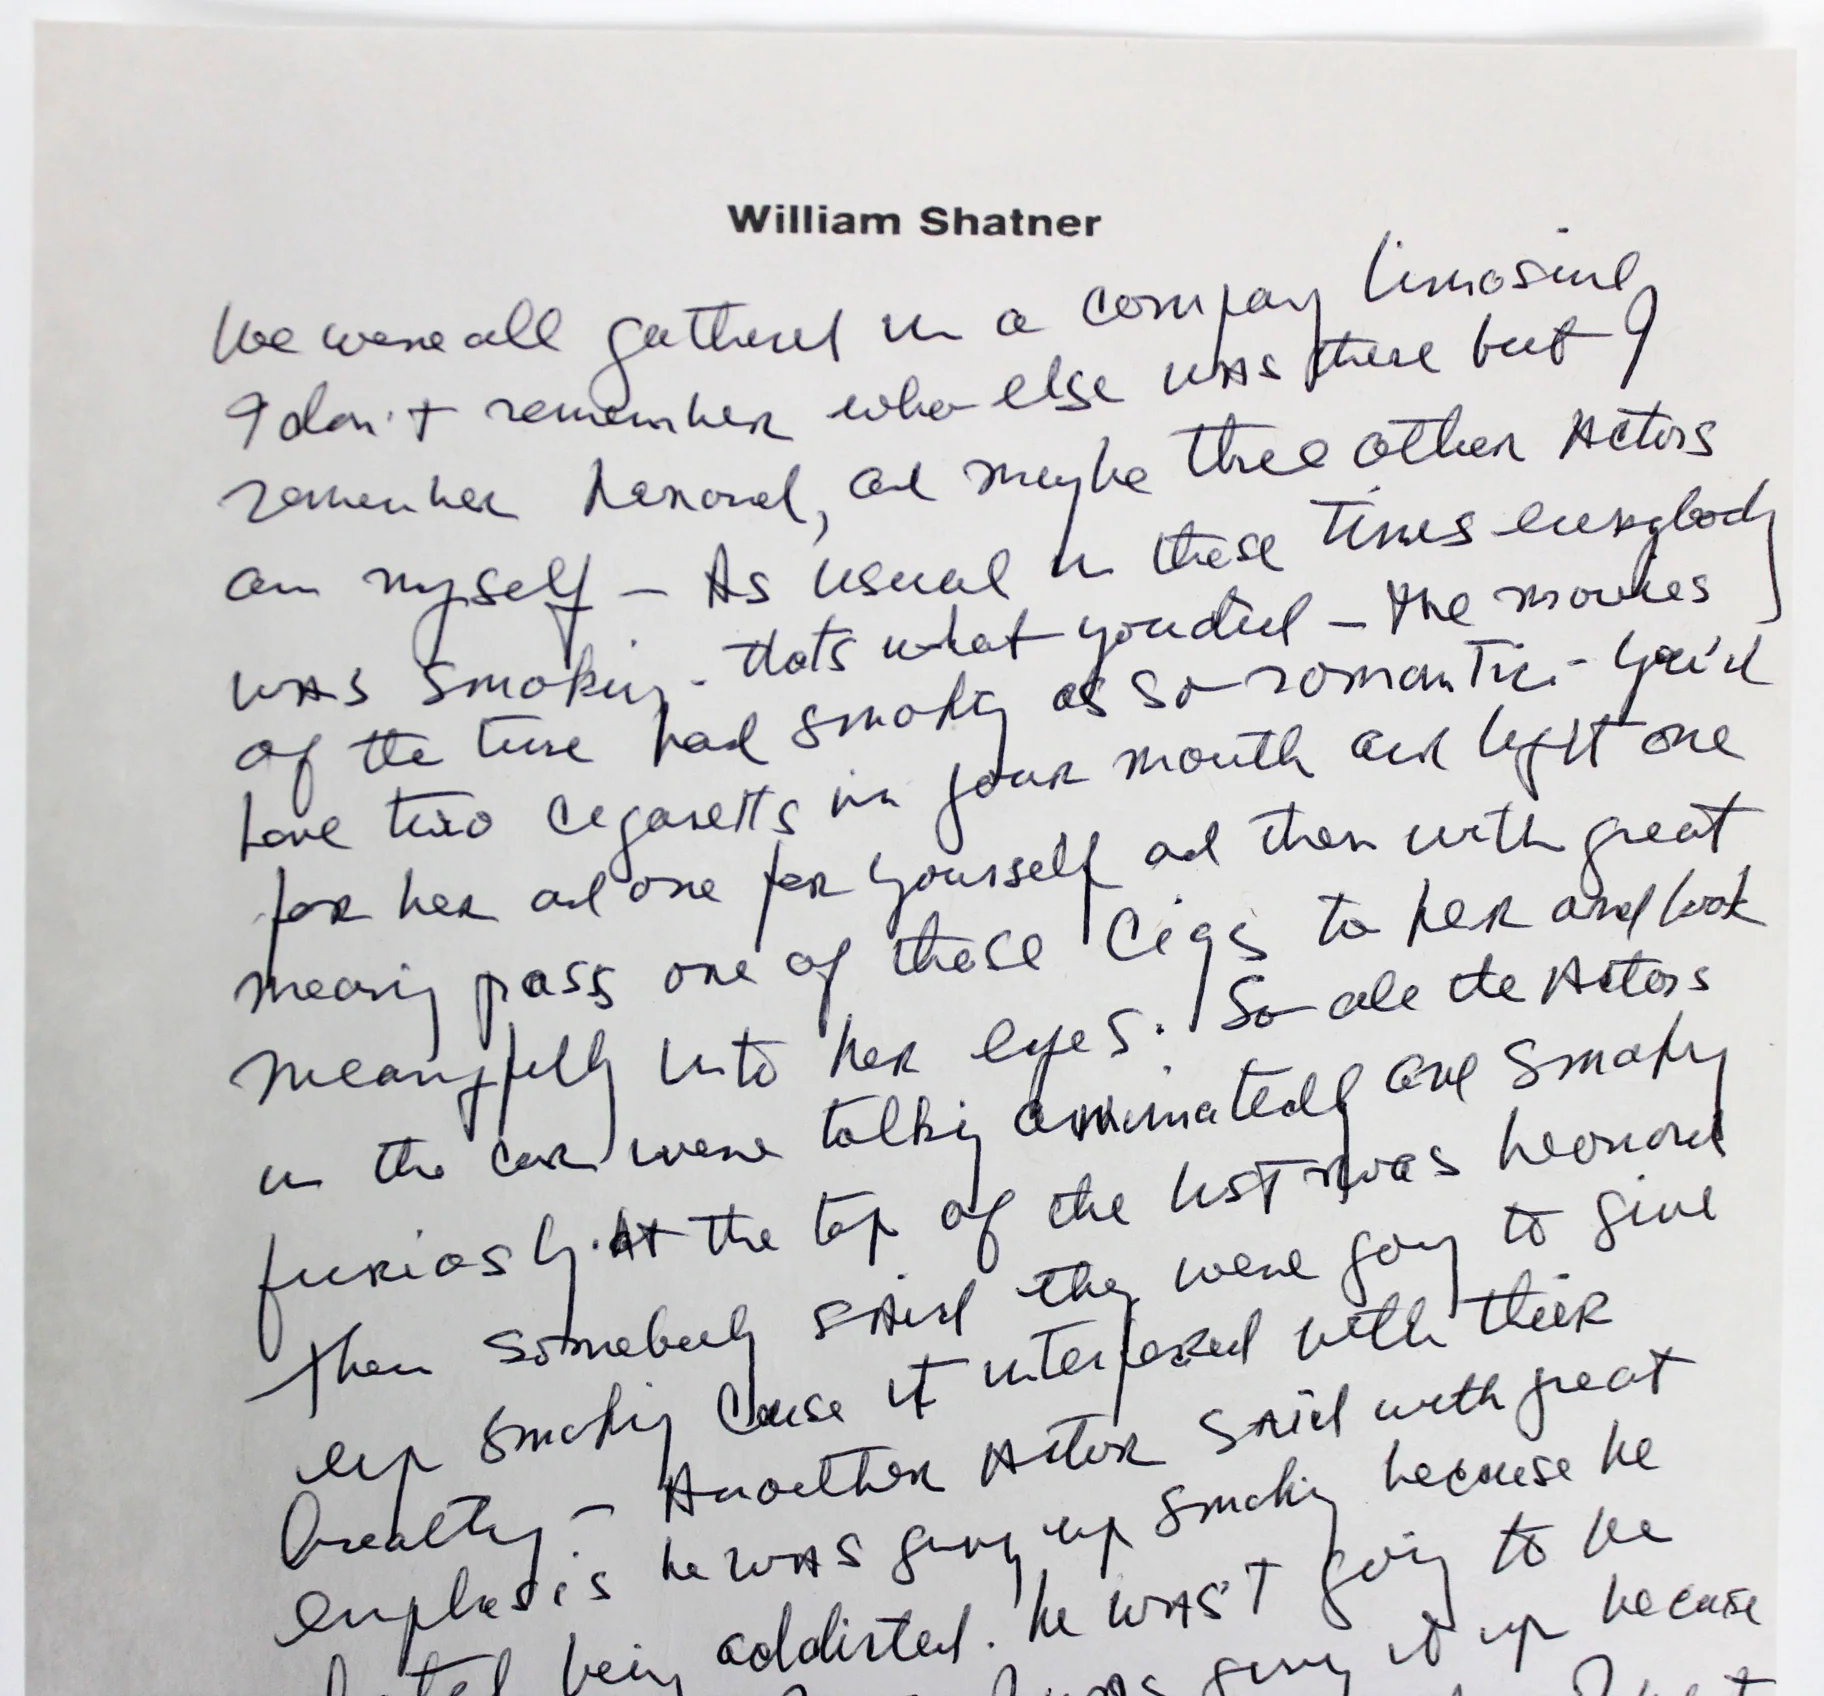 William Shatner
We were all gathered in a company limosine
I don't remember who else was there but I
remember Leonard, and maybe three other Actors
and myself - As usual in these times everybody
was smoking - thats what you did - the movies
of the time had smoking as so romantic - you'd
have two cigaretts in your mouth and light one
for her and one for yourself and then with great
meaning pass one of these cigs to her and look
meaningfully into her eyes. So all the Actors
in the car were talking animatedly and smoking
furiously. At the top of the list was Leonard
Then somebody said they were going to give
up smoking cause it interfered with their
breathing - Another Actor said with great
emphasis he was giving up smoking because he
hated being addicted. he wasn't going to be
giving it up because